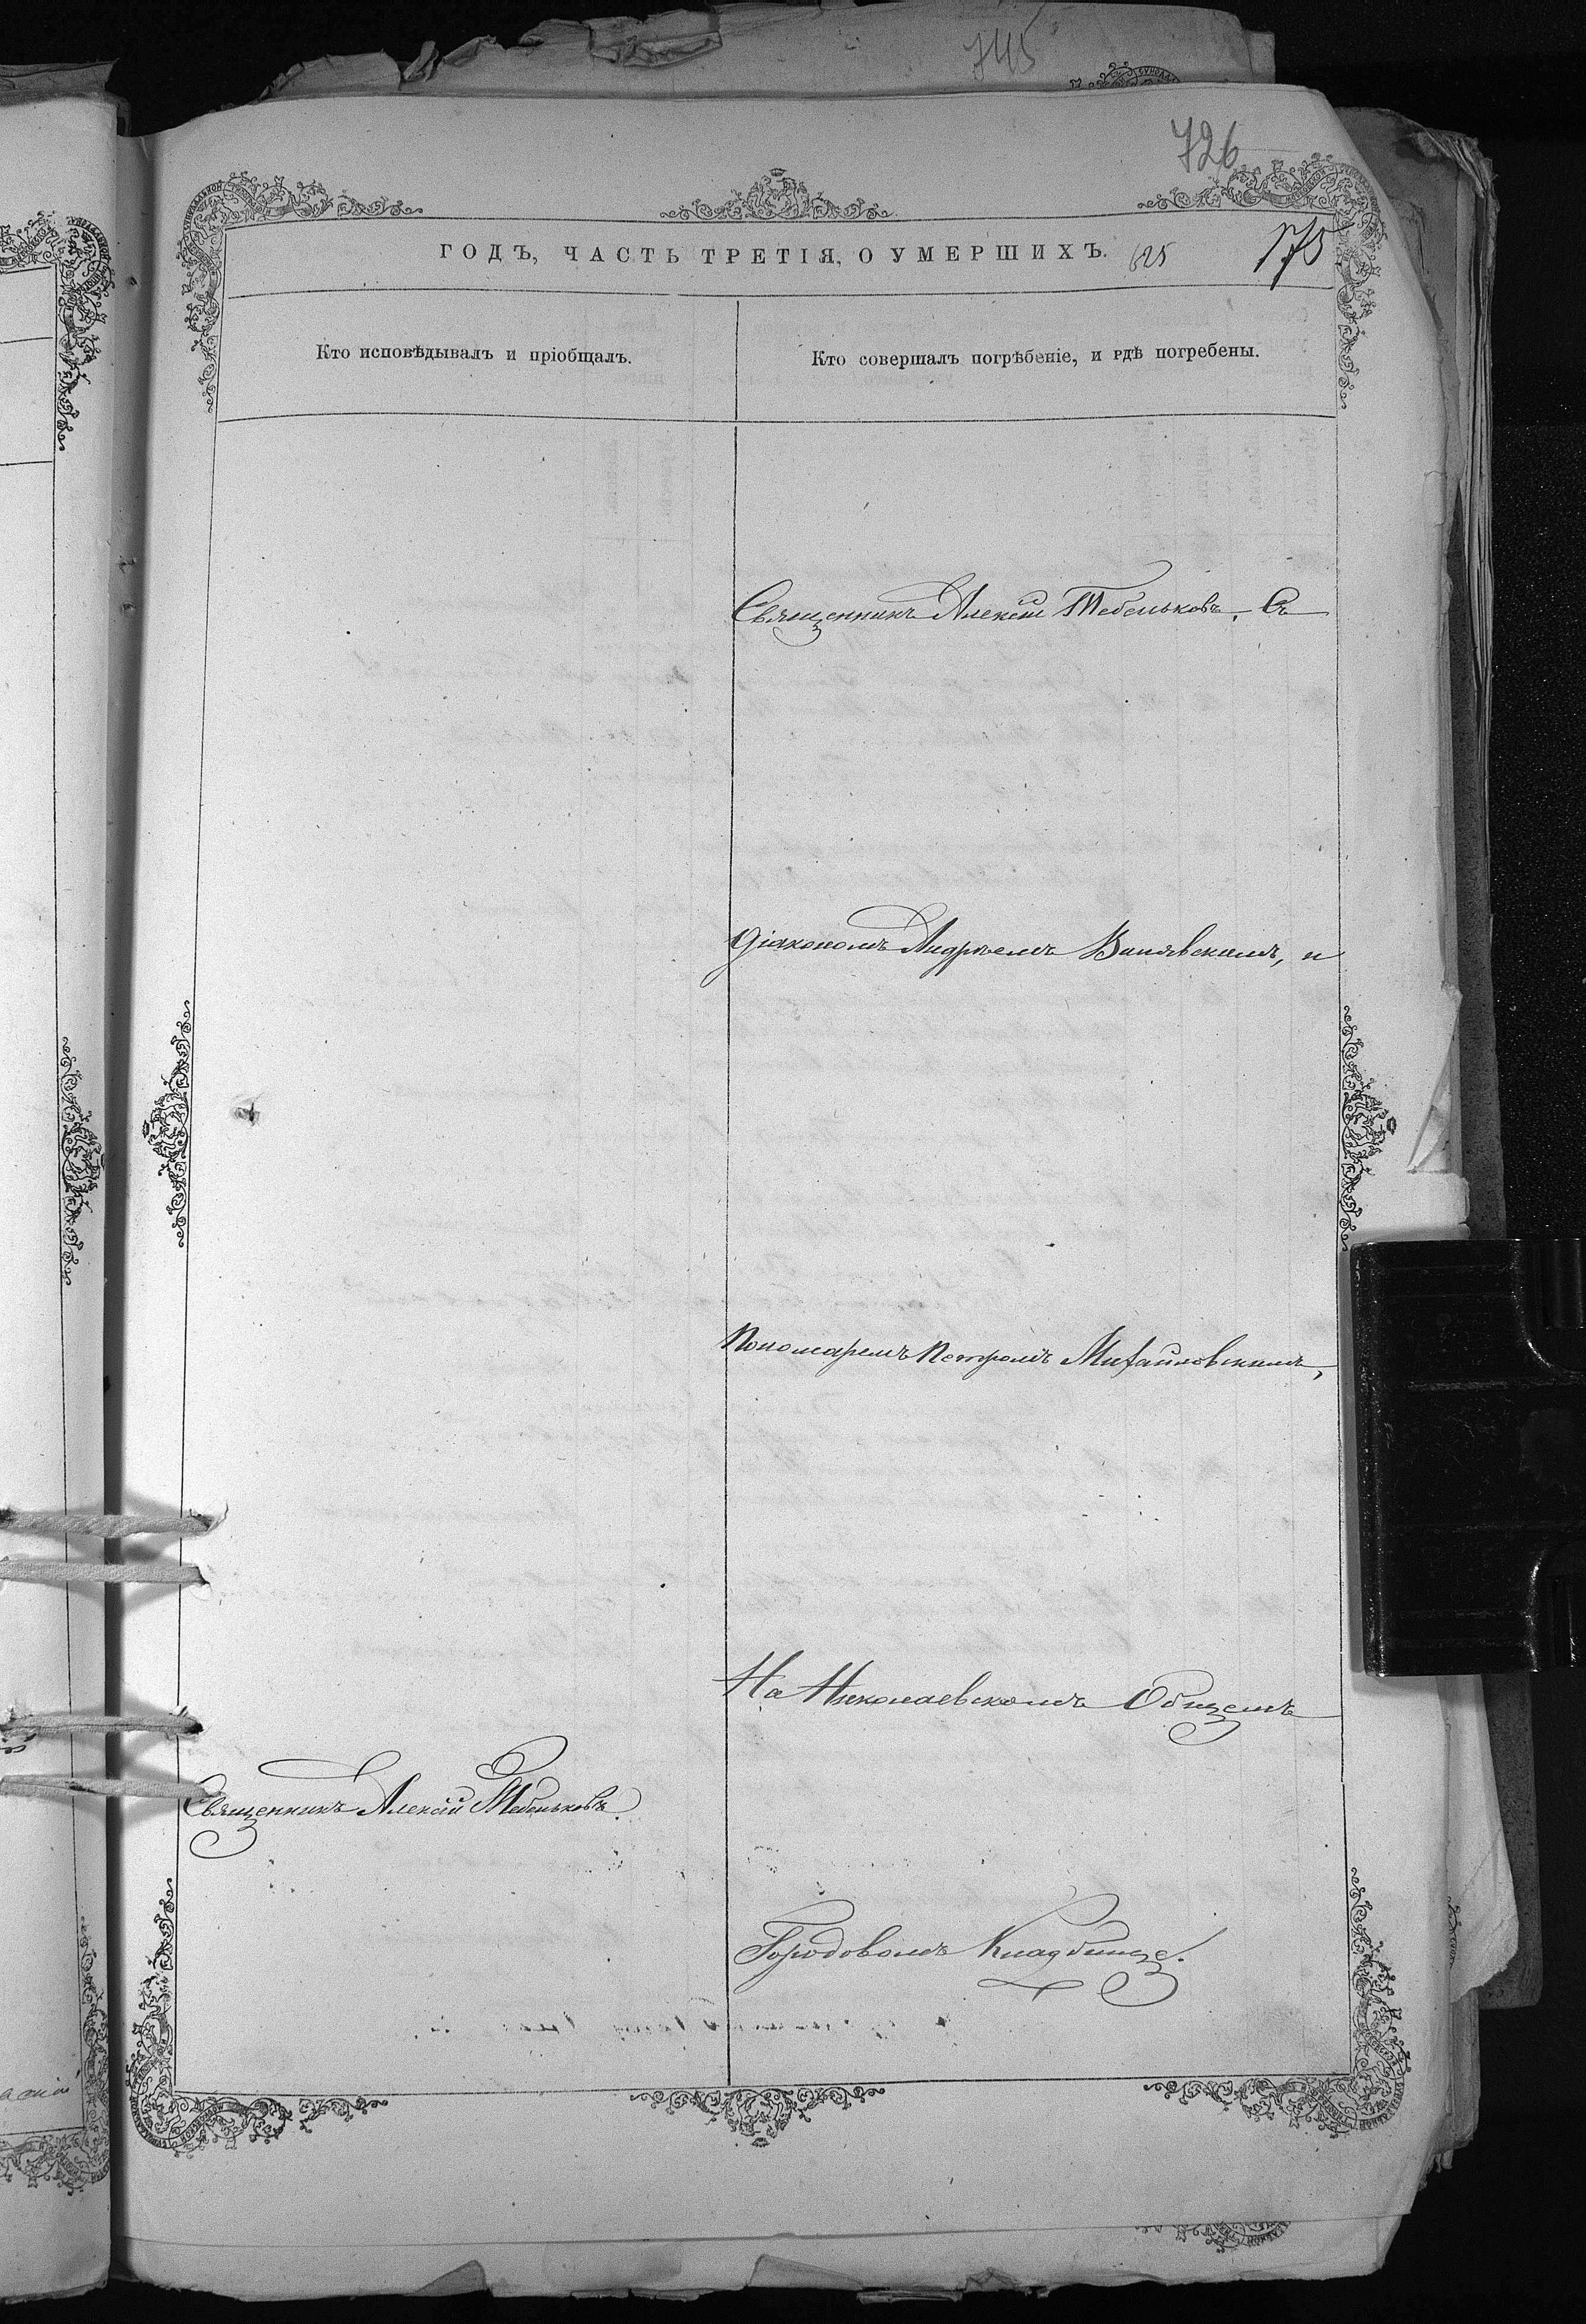 745
726
ГОДЪ, ЧАСТЬ ТРЕТІЯ, О УМЕРШИХЪ.
625
175
Кто исповѣдывалъ и пріобщалъ.
Кто совершалъ погрѣбеніе, и гдѣ погребены.
Священникъ Алексій Тебеньковъ, Съ
Діакономъ Андреемъ и
Пономаремъ Петромъ Михайловскимъ,
На Николаевскомъ Общемъ
Священникъ Алексій Тебеньковъ.
Городовомъ Кладбище.